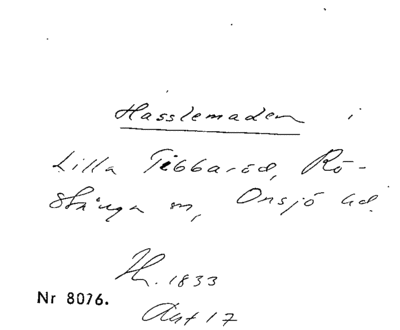 Hasslemaden i
Lilla Tibbaröd, Rö-
stånga sn, Onsjö hd.
H. 1833
Nr 8076.
Akt 17